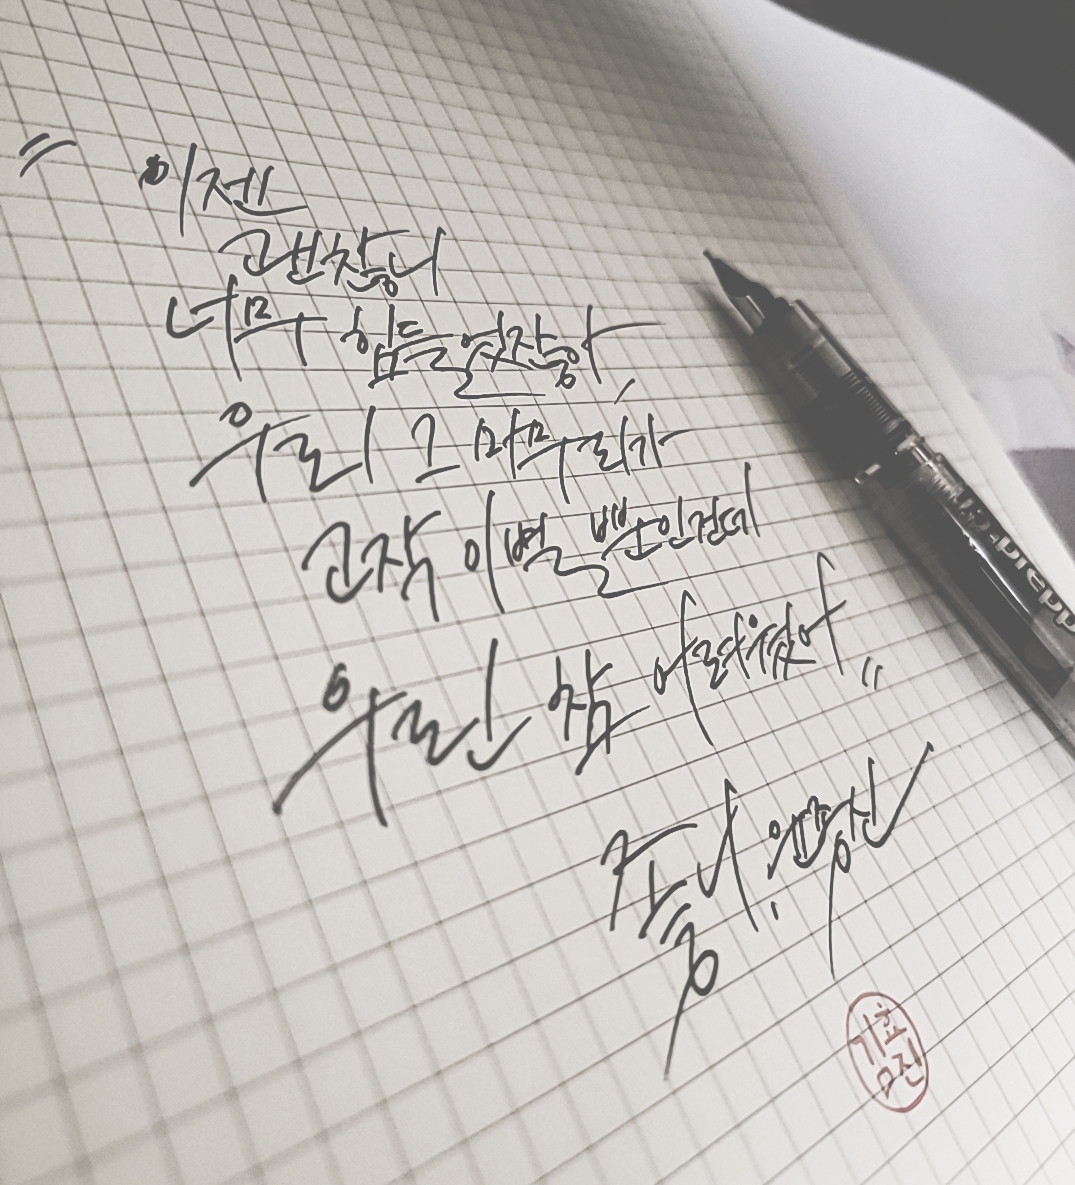 "이젠
괜찮니
너무 힘들었잖아,
우리 그 마무리가
고작 이별뿐인건데
우린 참 어려웠어"
좋니, 윤종신